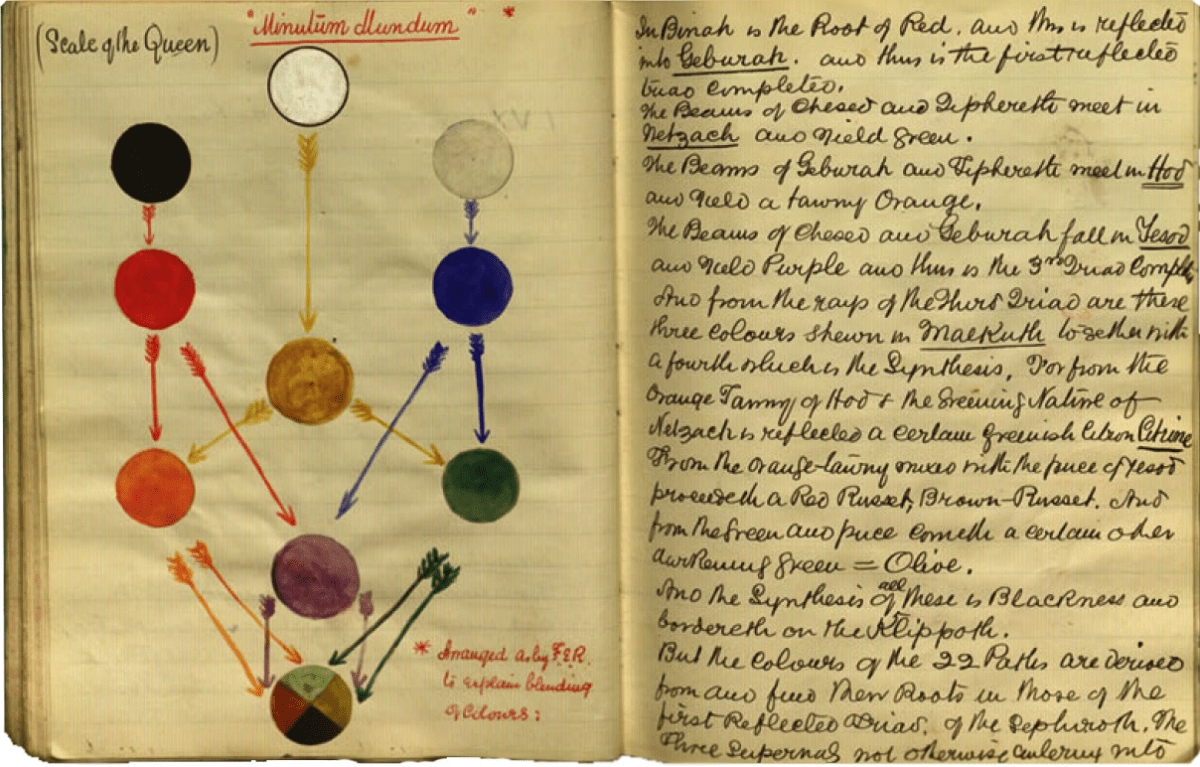 (Scale of the Queen)
"Minutum Mundum" *
* Arranged as by F.E.R.
to explain blending
of Colours:
In Binah is the Root of Red. and this is reflected
into Geburah. and thus is the first reflected
triad completed.
The Beams of Chesed and Tiphereth meet in
Netzach and yield green.
The Beams of Geburah and Tiphereth meet in Hod
and yield a tawny Orange.
The Beams of Chesed and Geburah fall in Yesod
and yield Purple and thus is the 3rd Triad Comple
And from the rays of the Third Triad are these
three colours shewn in Malkuth together with
a fourth which is the Synthesis. For from the
Orange Tawny of Hod & the Greening Nature of
Netzach is reflected a certain greenish Citron Citrine
From the orange-tawny mixed with the puce of Yesod
proceedeth a Red Russet, Brown-Russet. And
from the green and puce cometh a certain other
darkening green = Olive.
And the Synthesis of all these is Blackness and
bordereth on the Klippoth.
But the Colours of the 22 Paths are derived
from and find their Roots in those of the
first Reflected Triad. of the Sephiroth. The
Three Supernals not otherwise entering into